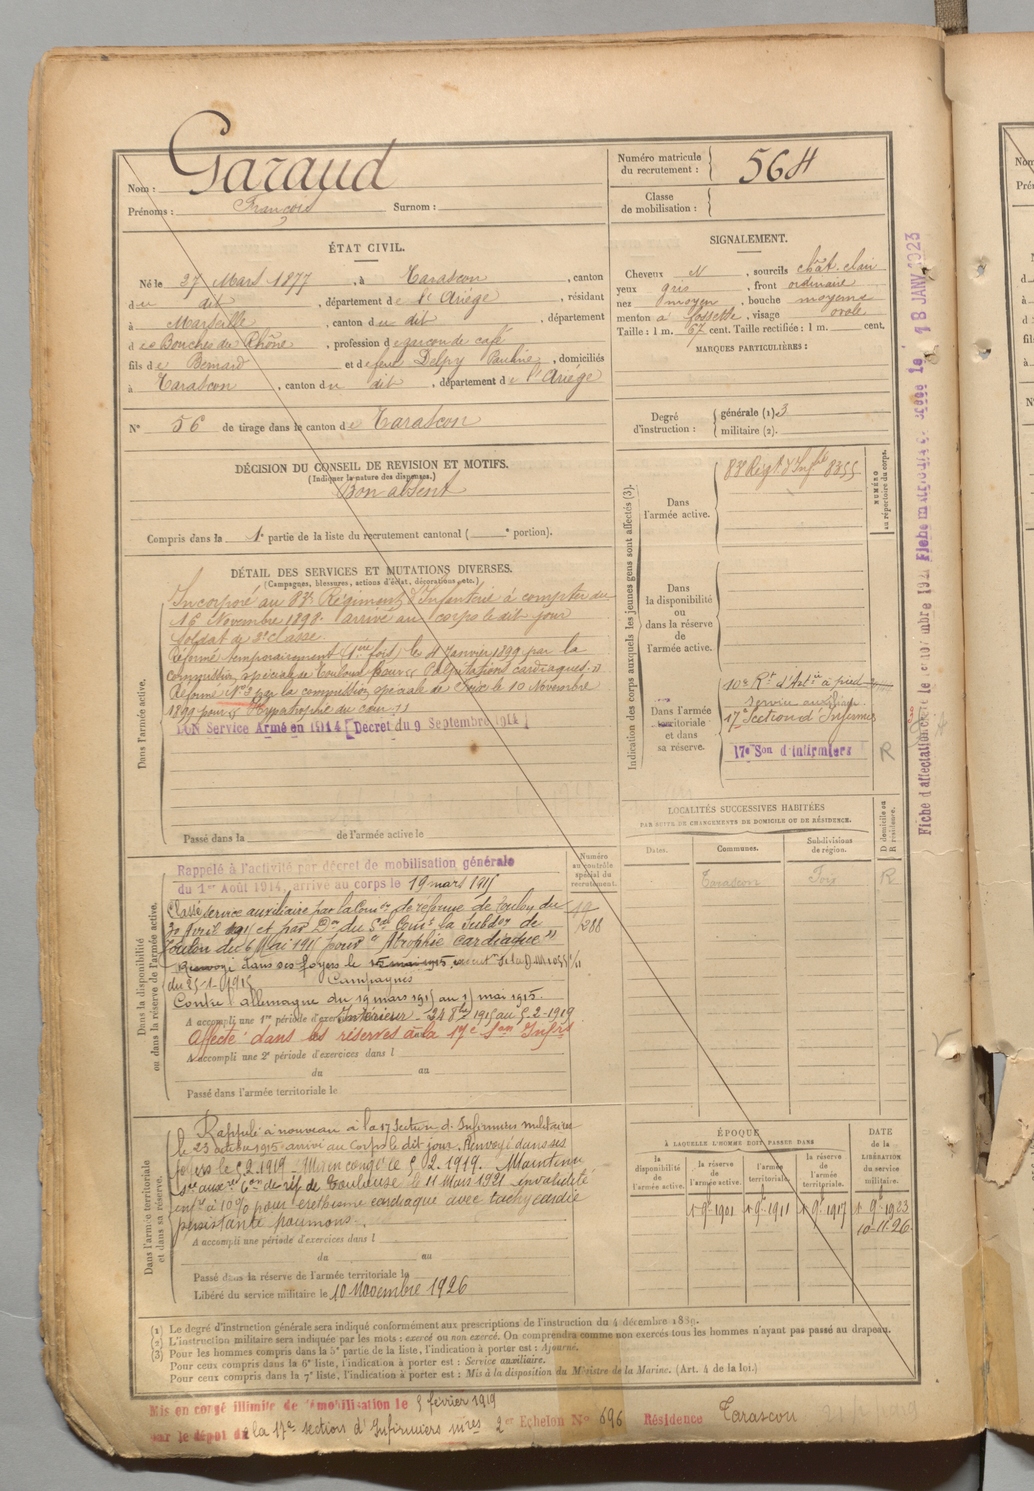 Nom : Garaud
Prénoms : François Surnom :
Numéro matricule du recrutement : 564
Classe de mobilisation :
ÉTAT CIVIL.
Né le 27 Mars 1877, à Tarascon, canton
du dit, département de l'Ariège, résidant
à Marseille, canton du dit, département
des Bouches du Rhône, profession de garçon de café
fils de Bernard et de feue Delpy Pauline, domiciliés
à Tarascon, canton du dit, département de l'Ariège
N° 56 de tirage dans le canton de Tarascon
SIGNALEMENT.
Cheveux N, sourcils chât. clair
yeux gris, front ordinaire
nez moyen, bouche moyenne
menton à fossette, visage ovale
Taille : 1 m. 67 cent. Taille rectifiée : 1 m. cent.
MARQUES PARTICULIÈRES :
Degré d'instruction : générale (1) 3
militaire (2).
DÉCISION DU CONSEIL DE REVISION ET MOTIFS.
(Indiquer la nature des dispenses.)
Bon absent
Compris dans la 1e partie de la liste du recrutement cantonal ( e portion).
DÉTAIL DES SERVICES ET MUTATIONS DIVERSES.
(Campagnes, blessures, actions d'éclat, décorations, etc.)
Dans l'armée active.
Incorporé au 83e Régiment d'Infanterie à compter du
16 Novembre 1898. arrivé au corps le dit jour
Soldat de 2e classe.
Réformé temporairement (1ère fois) le 4 Janvier 1899 par la
commission spéciale de Toulouse pour « Palpitations cardiaques. »
Réformé N° 2 par la commission spéciale de Foix le 10 Novembre
1899 pour « Hypertrophie du cœur »
BON Service Armé en 1914 [Décret du 9 Septembre 1914]
Passé dans la de l'armée active le
Indication des corps auxquels les jeunes gens sont affectés (3).
NUMÉRO au répertoire du corps.
Dans l'armée active.
83e Regt d'Infie 8355
Dans la disponibilité ou dans la réserve de l'armée active.
Dans l'armée territoriale et dans sa réserve.
10e Rt d'Artie à pied
service auxiliaire
17e Section d'Infirmiers
17e Son d'Infirmiers R
LOCALITÉS SUCCESSIVES HABITÉES
PAR SUITE DE CHANGEMENTS DE DOMICILE OU DE RÉSIDENCE.
Dates. Communes. Subdivisions de région. D domicile ou R résidence.
Tarascon Foix R
Dans la disponibilité ou dans la réserve de l'armée active.
Numéro au contrôle spécial du recrutement.
288
Rappelé à l'activité par décret de mobilisation générale
du 1er Août 1914, arrivé au corps le 19 mars 1915
Classé service auxiliaire par la Comon de réforme de Toulon du
30 Avril 1915 et par Don du Gal Comt la Subdon de
Toulon du 6 Mai 1915 pour « Atrophie cardiaque »
Renvoyé dans ses foyers le 15 mai 1915
Campagnes
Contre l'Allemagne du 19 mars 1915 au 15 mai 1915.
A accompli une 1re période d'exercices
Intérieur - 24 8bre 1915 au 5-2-1919
Affecté dans les réserves à la 17e Son Infirs
A accompli une 2e période d'exercices dans l
du au
Passé dans l'armée territoriale le
Dans l'armée territoriale et dans sa réserve.
Rappelé à nouveau à la 17 Section d'Infirmiers militaires
le 23 octobre 1915 arrivé au corps le dit jour. Renvoyé dans ses
foyers le 5.2.1919. Mis en congé le 5.02.1919. Maintenu
sce auxre Con de réf. de Toulouse le 11 Mars 1921 invalidité
infre à 10% pour éréthisme cardiaque avec tachycardie
persistante poumons.
A accompli une période d'exercices dans l
du au
Passé dans la réserve de l'armée territoriale le
Libéré du service militaire le 10 Novembre 1926
ÉPOQUE
À LAQUELLE L'HOMME DOIT PASSER DANS
DATE de la LIBÉRATION du service militaire.
la disponibilité de l'armée active. la réserve de l'armée active. l'armée territoriale. la réserve de l'armée territoriale.
1 9bre 1901 1 9bre 1911 1 9bre 1917 1 9bre 1923
10-11-26
(1) Le degré d'instruction générale sera indiqué conformément aux prescriptions de l'instruction du 4 décembre 1889.
(2) L'instruction militaire sera indiquée par les mots : exercé ou non exercé. On comprendra comme non exercés tous les hommes n'ayant pas passé au drapeau.
(3) Pour les hommes compris dans la 5e partie de la liste, l'indication à porter est : Ajourné.
Pour ceux compris dans la 6e liste, l'indication à porter est : Service auxiliaire.
Pour ceux compris dans la 7e liste, l'indication à porter est : Mis à la disposition du Ministre de la Marine. (Art. 4 de la loi.)
Mis en congé illimité de démobilisation le 5 février 1919
par le dépôt de la 17e section d'Infirmiers mires 2e Echelon N° 696 Résidence Tarascon
18 JANV 1923